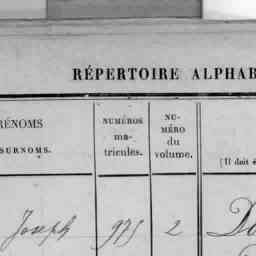 RÉPERTOIRE ALPHAB
RÉNOMS
SURNOMS.
NUMÉROS
ma-
tricules.
NU-
MÉRO
du
volume.
(Il doit é
Joseph 975 2